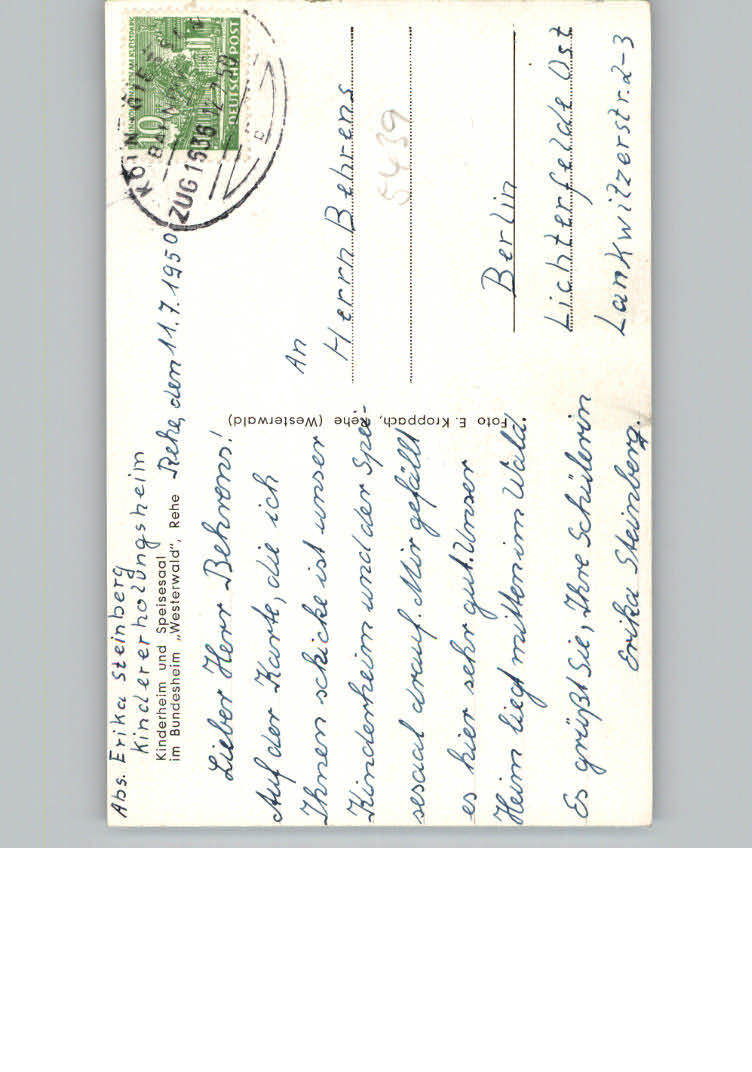 Abs. Erika Steinberg
Kindererholungsheim
Kinderheim und Speisesaal
im Bundesheim „Westerwald", Rehe
Rehe, den 11.7.1950
Lieber Herr Behrens!
Auf der Karte, die ich
Ihnen schicke ist unser
Kinderheim und der Spei-
sesaal drauf. Mir gefällt
es hier sehr gut. Unser
Heim liegt mitten im Wald.
Es grüßt Sie, Ihre Schülerin
Erika Steinberg.
Foto E. Kroppach, Rehe (Westerwald)
10
DEUTSCHE POST
KÖLN
ZUG 1636
7.50
An
Herrn Behrens
5439
Berlin
Lichterfelde Ost
Lankwitzerstr. 2-3